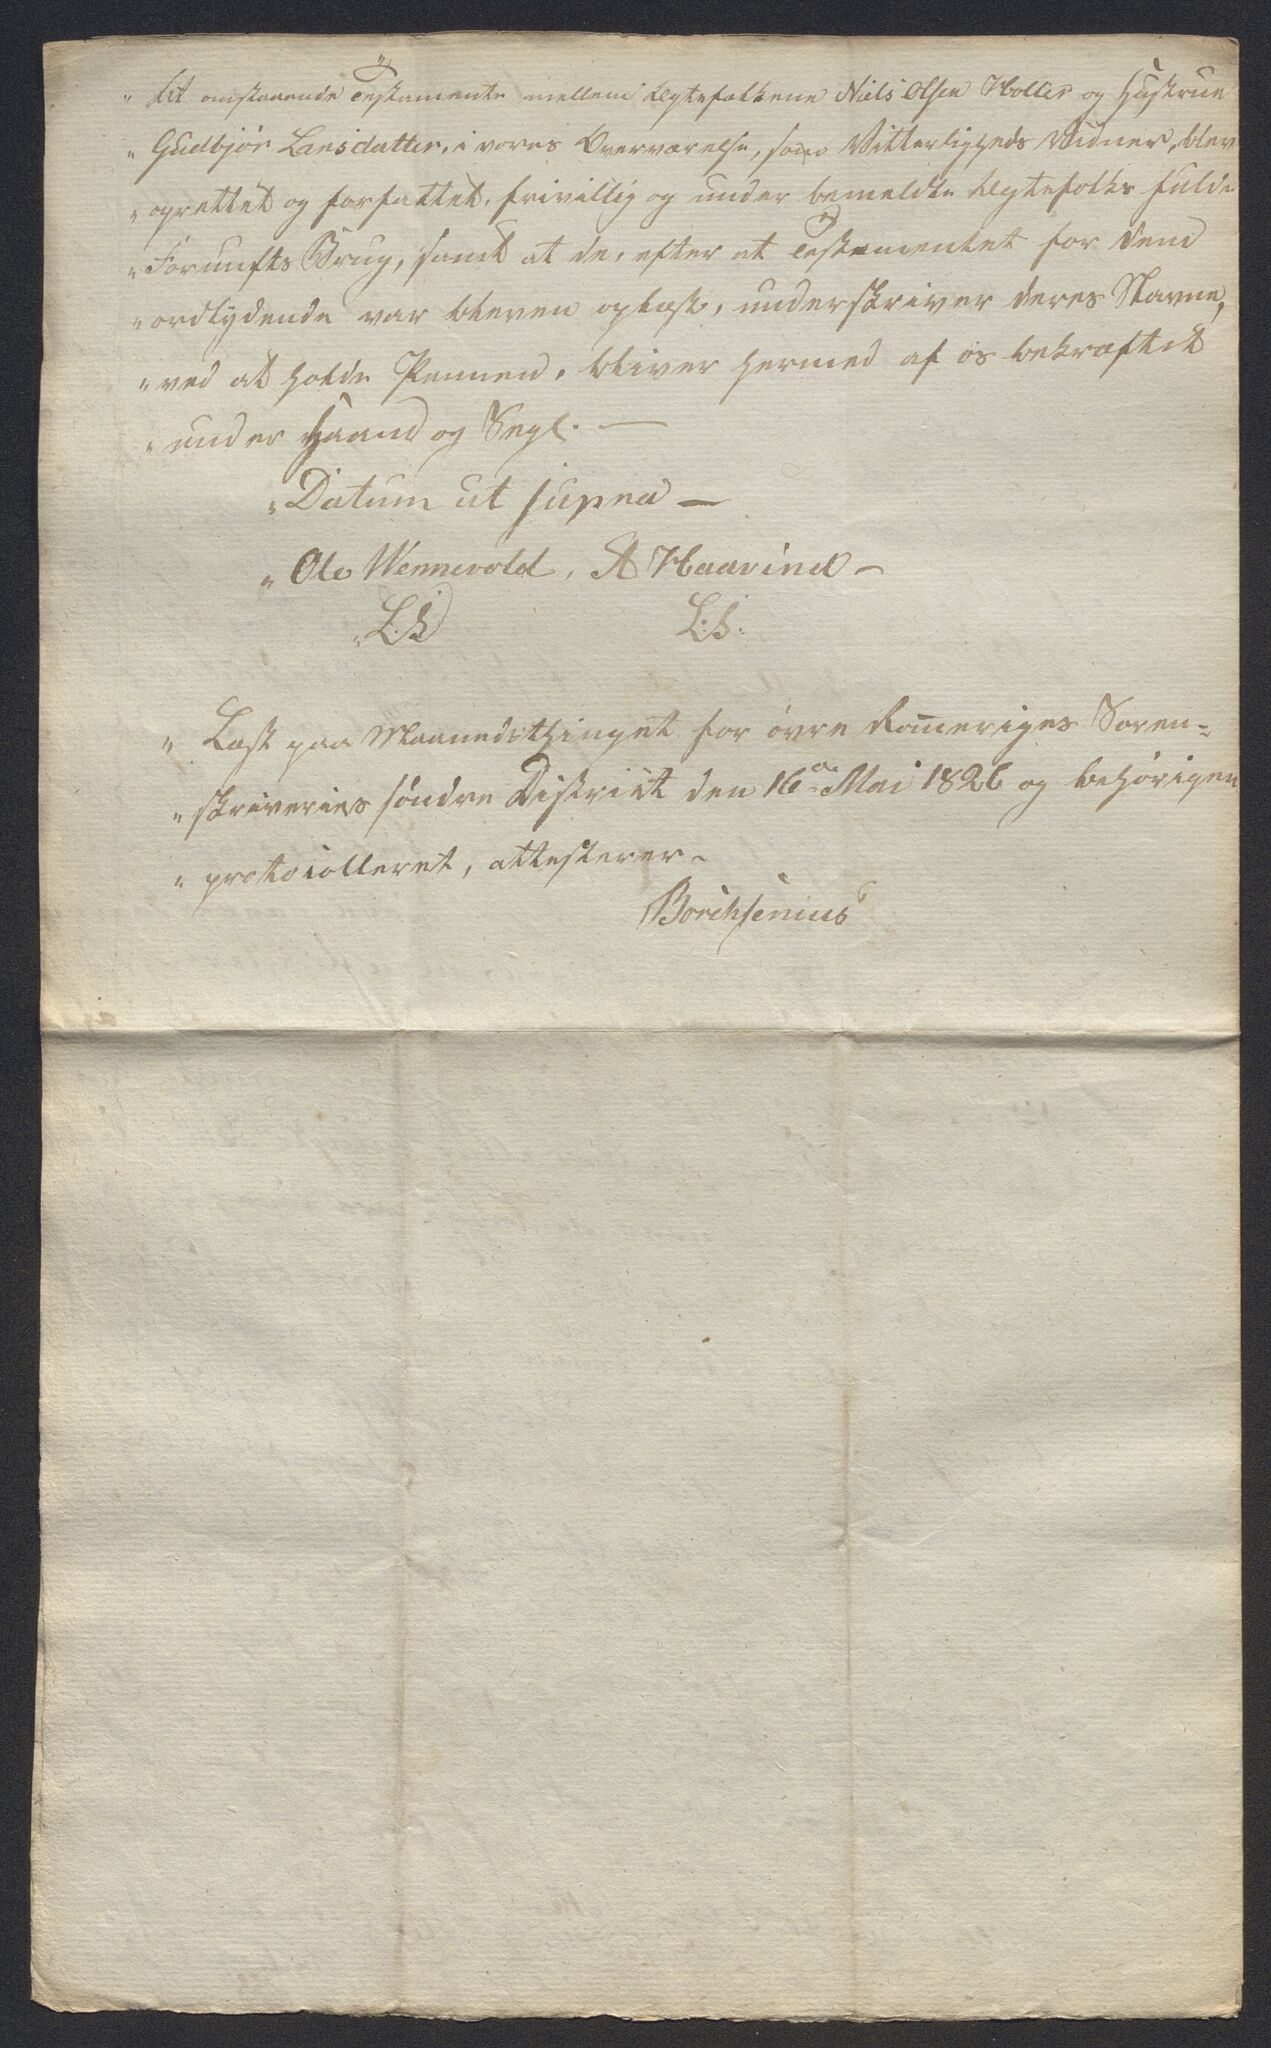 " At omstaaende Testamente mellem Ægtefolkene Niels Olsen Holter og Hustrue
" Gudbjør Larsdatter, i vores Overværelse, som Vitterligheds Vidner, blev
" oprettet og forfattet, frivillig og under bemeldte Ægtefolks fulde
" Fornufts Brug, samt at de, efter at Testamentet for dem
" ordlydende var bleven oplæst, underskriver deres Navne,
" ved at holde Pennen, bliver hermed af os bekræftet
" under Haand og Segl. —
" Datum ut supra —
" Ole Wennevold, A Haarind —
" L.S. L:S:
" Læst paa Maanedsthinget for øvre Romeriges Soren-
" skriveries søndre District den 16de Mai 1826 og behørigen
" protocolleret, attesterer -
Borchsenius